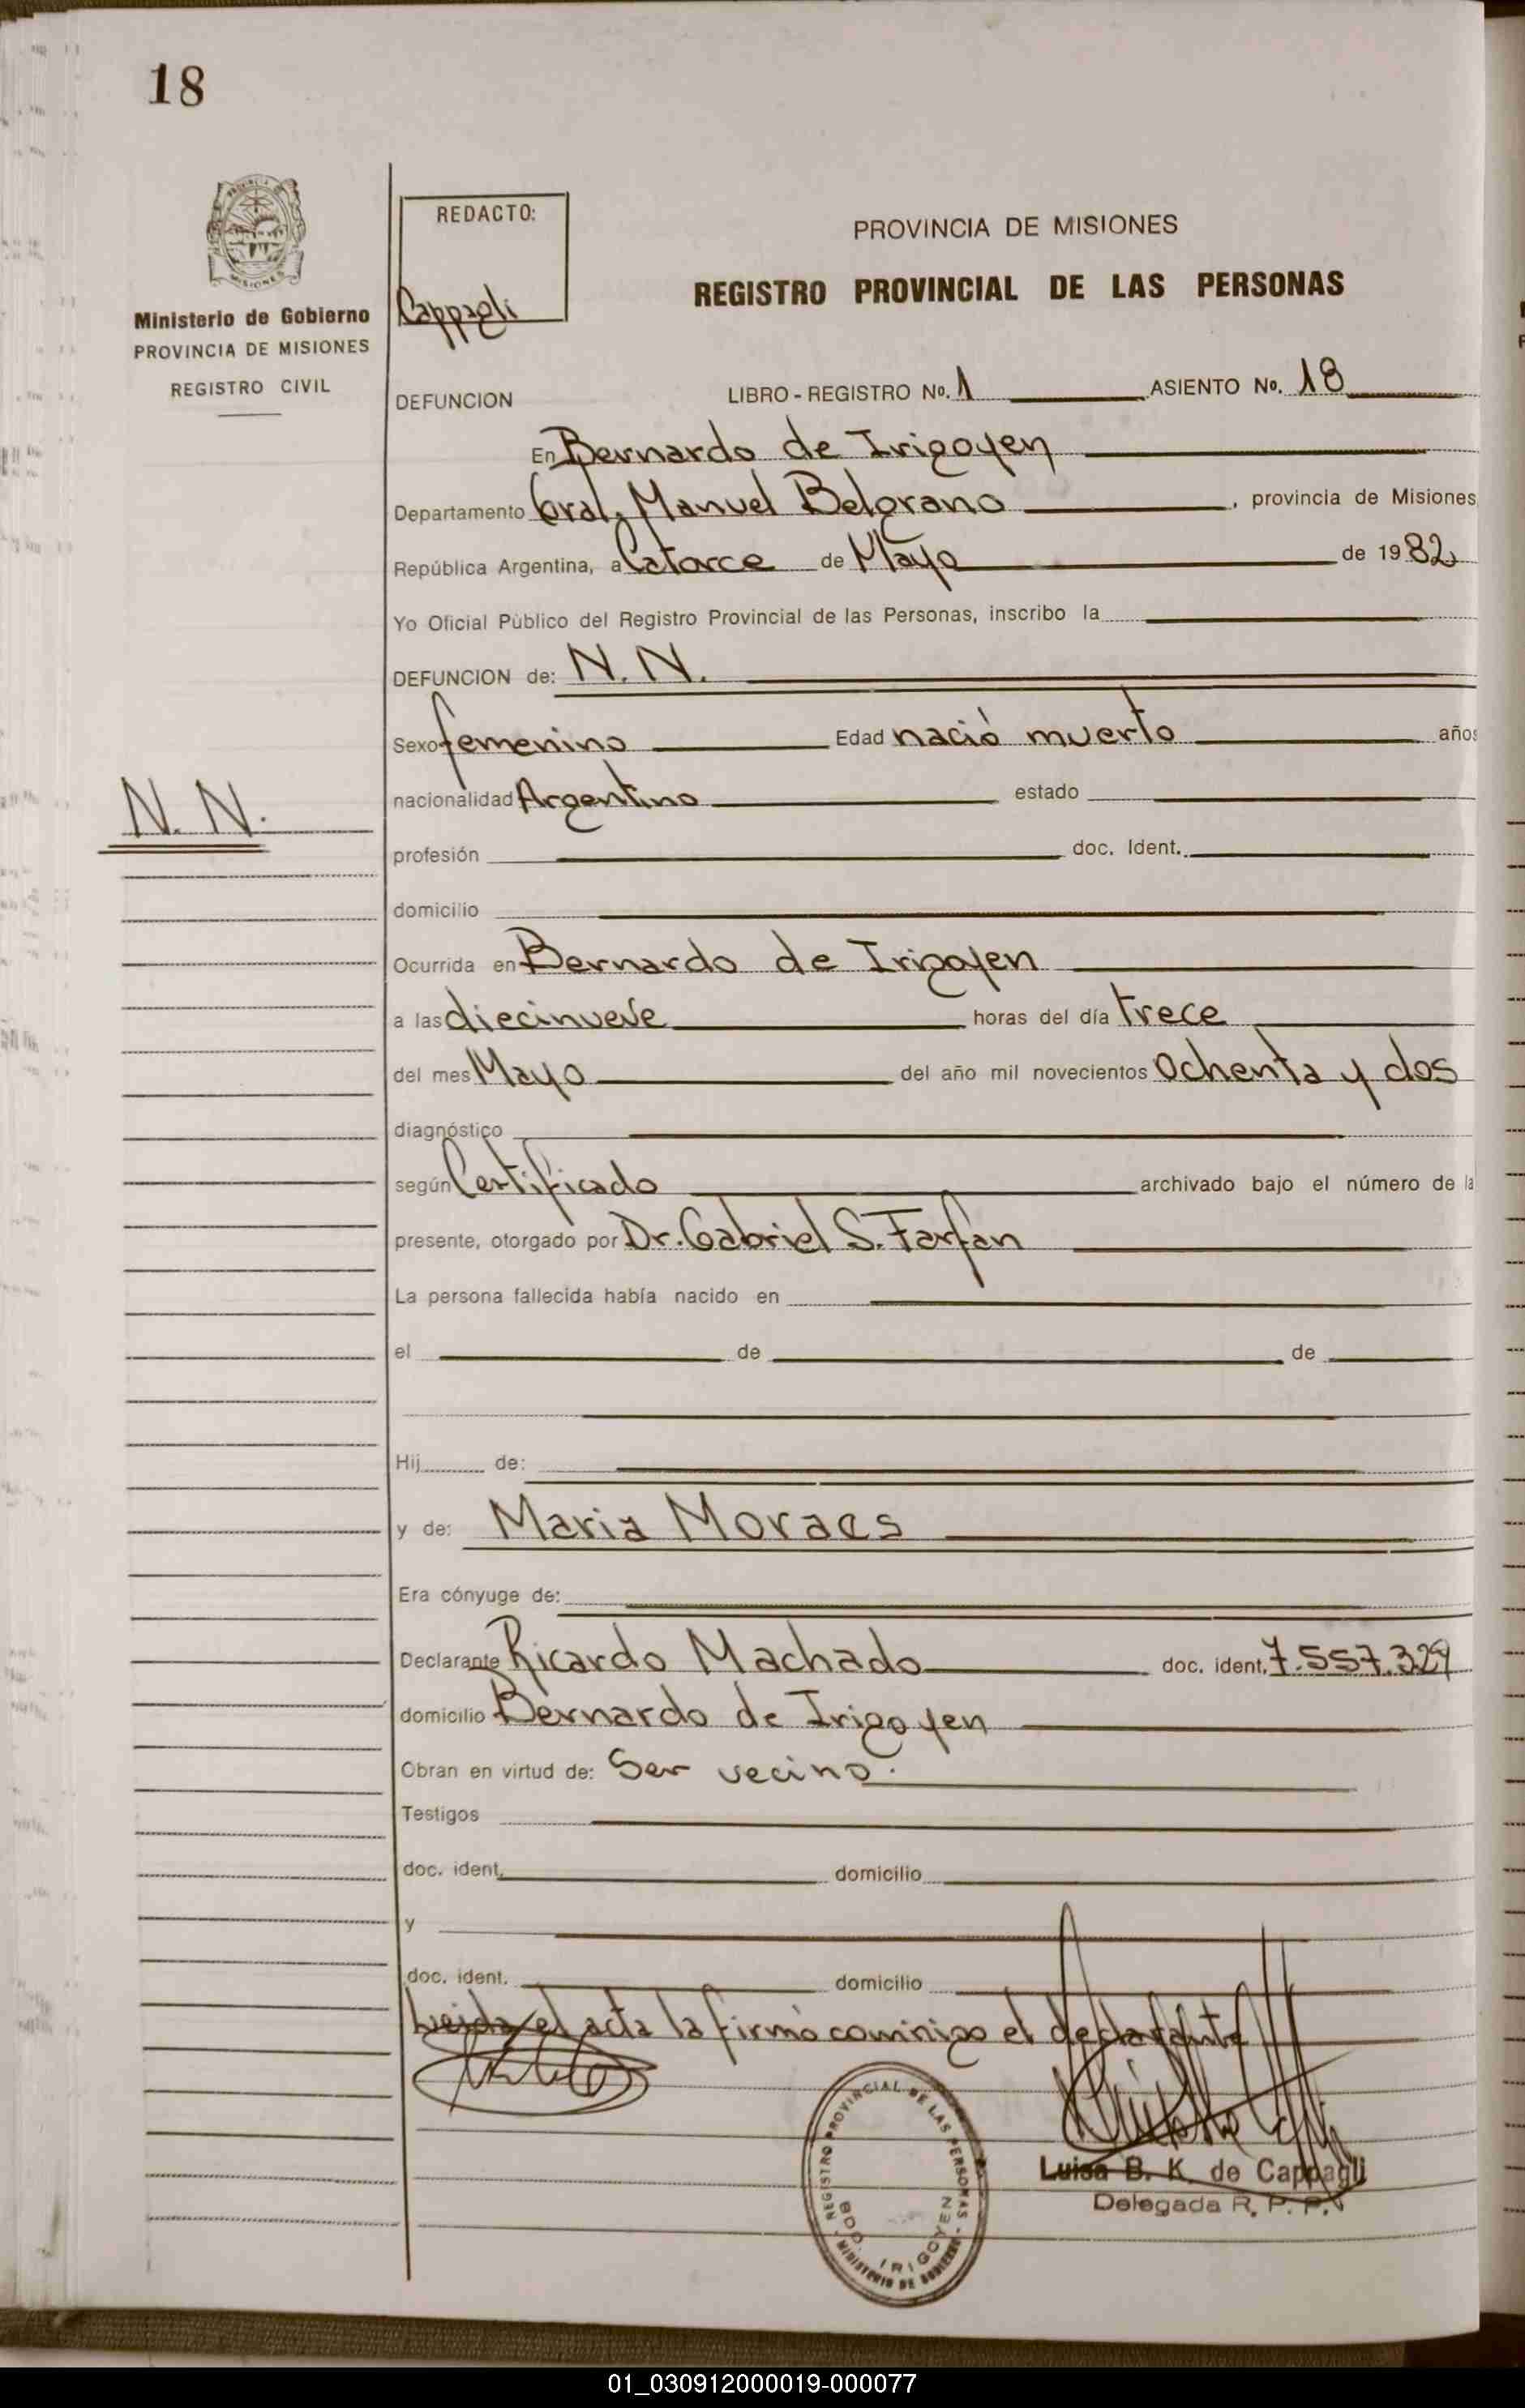 18
PROVINCIA DE
MISIONES
Ministerio de Gobierno
PROVINCIA DE MISIONES
REGISTRO CIVIL
N. N.
REDACTO:
Cappagli
PROVINCIA DE MISIONES
REGISTRO PROVINCIAL DE LAS PERSONAS
DEFUNCION LIBRO - REGISTRO Nº. 1 ASIENTO Nº. 18
En Bernardo de Irigoyen
Departamento Gral. Manuel Belgrano, provincia de Misiones
República Argentina, a Catorce de Mayo de 1982
Yo Oficial Público del Registro Provincial de las Personas, inscribo la
DEFUNCION de: N. N.
Sexo femenino Edad nació muerto años
nacionalidad Argentino estado
profesión doc. Ident.
domicilio
Ocurrida en Bernardo de Irigoyen
a las diecinueve horas del día trece
del mes Mayo del año mil novecientos Ochenta y dos
diagnóstico
según Certificado archivado bajo el número de la
presente, otorgado por Dr. Gabriel S. Farfan
La persona fallecida había nacido en
el de de
Hij de:
y de: Maria Moraes
Era cónyuge de:
Declarante Ricardo Machado doc. ident. 7.557.329
domicilio Bernardo de Irigoyen
Obran en virtud de: Ser vecino.
Testigos
doc. ident. domicilio
y
doc. ident. domicilio
Leida el acta la firmó conmigo el declarante
REGISTRO PROVINCIAL DE LAS PERSONAS
BDO. IRIGOYEN
MINISTERIO DE GOBIERNO
Luisa B. K. de Cappagli
Delegada R. P. P.
01_030912000019-000077